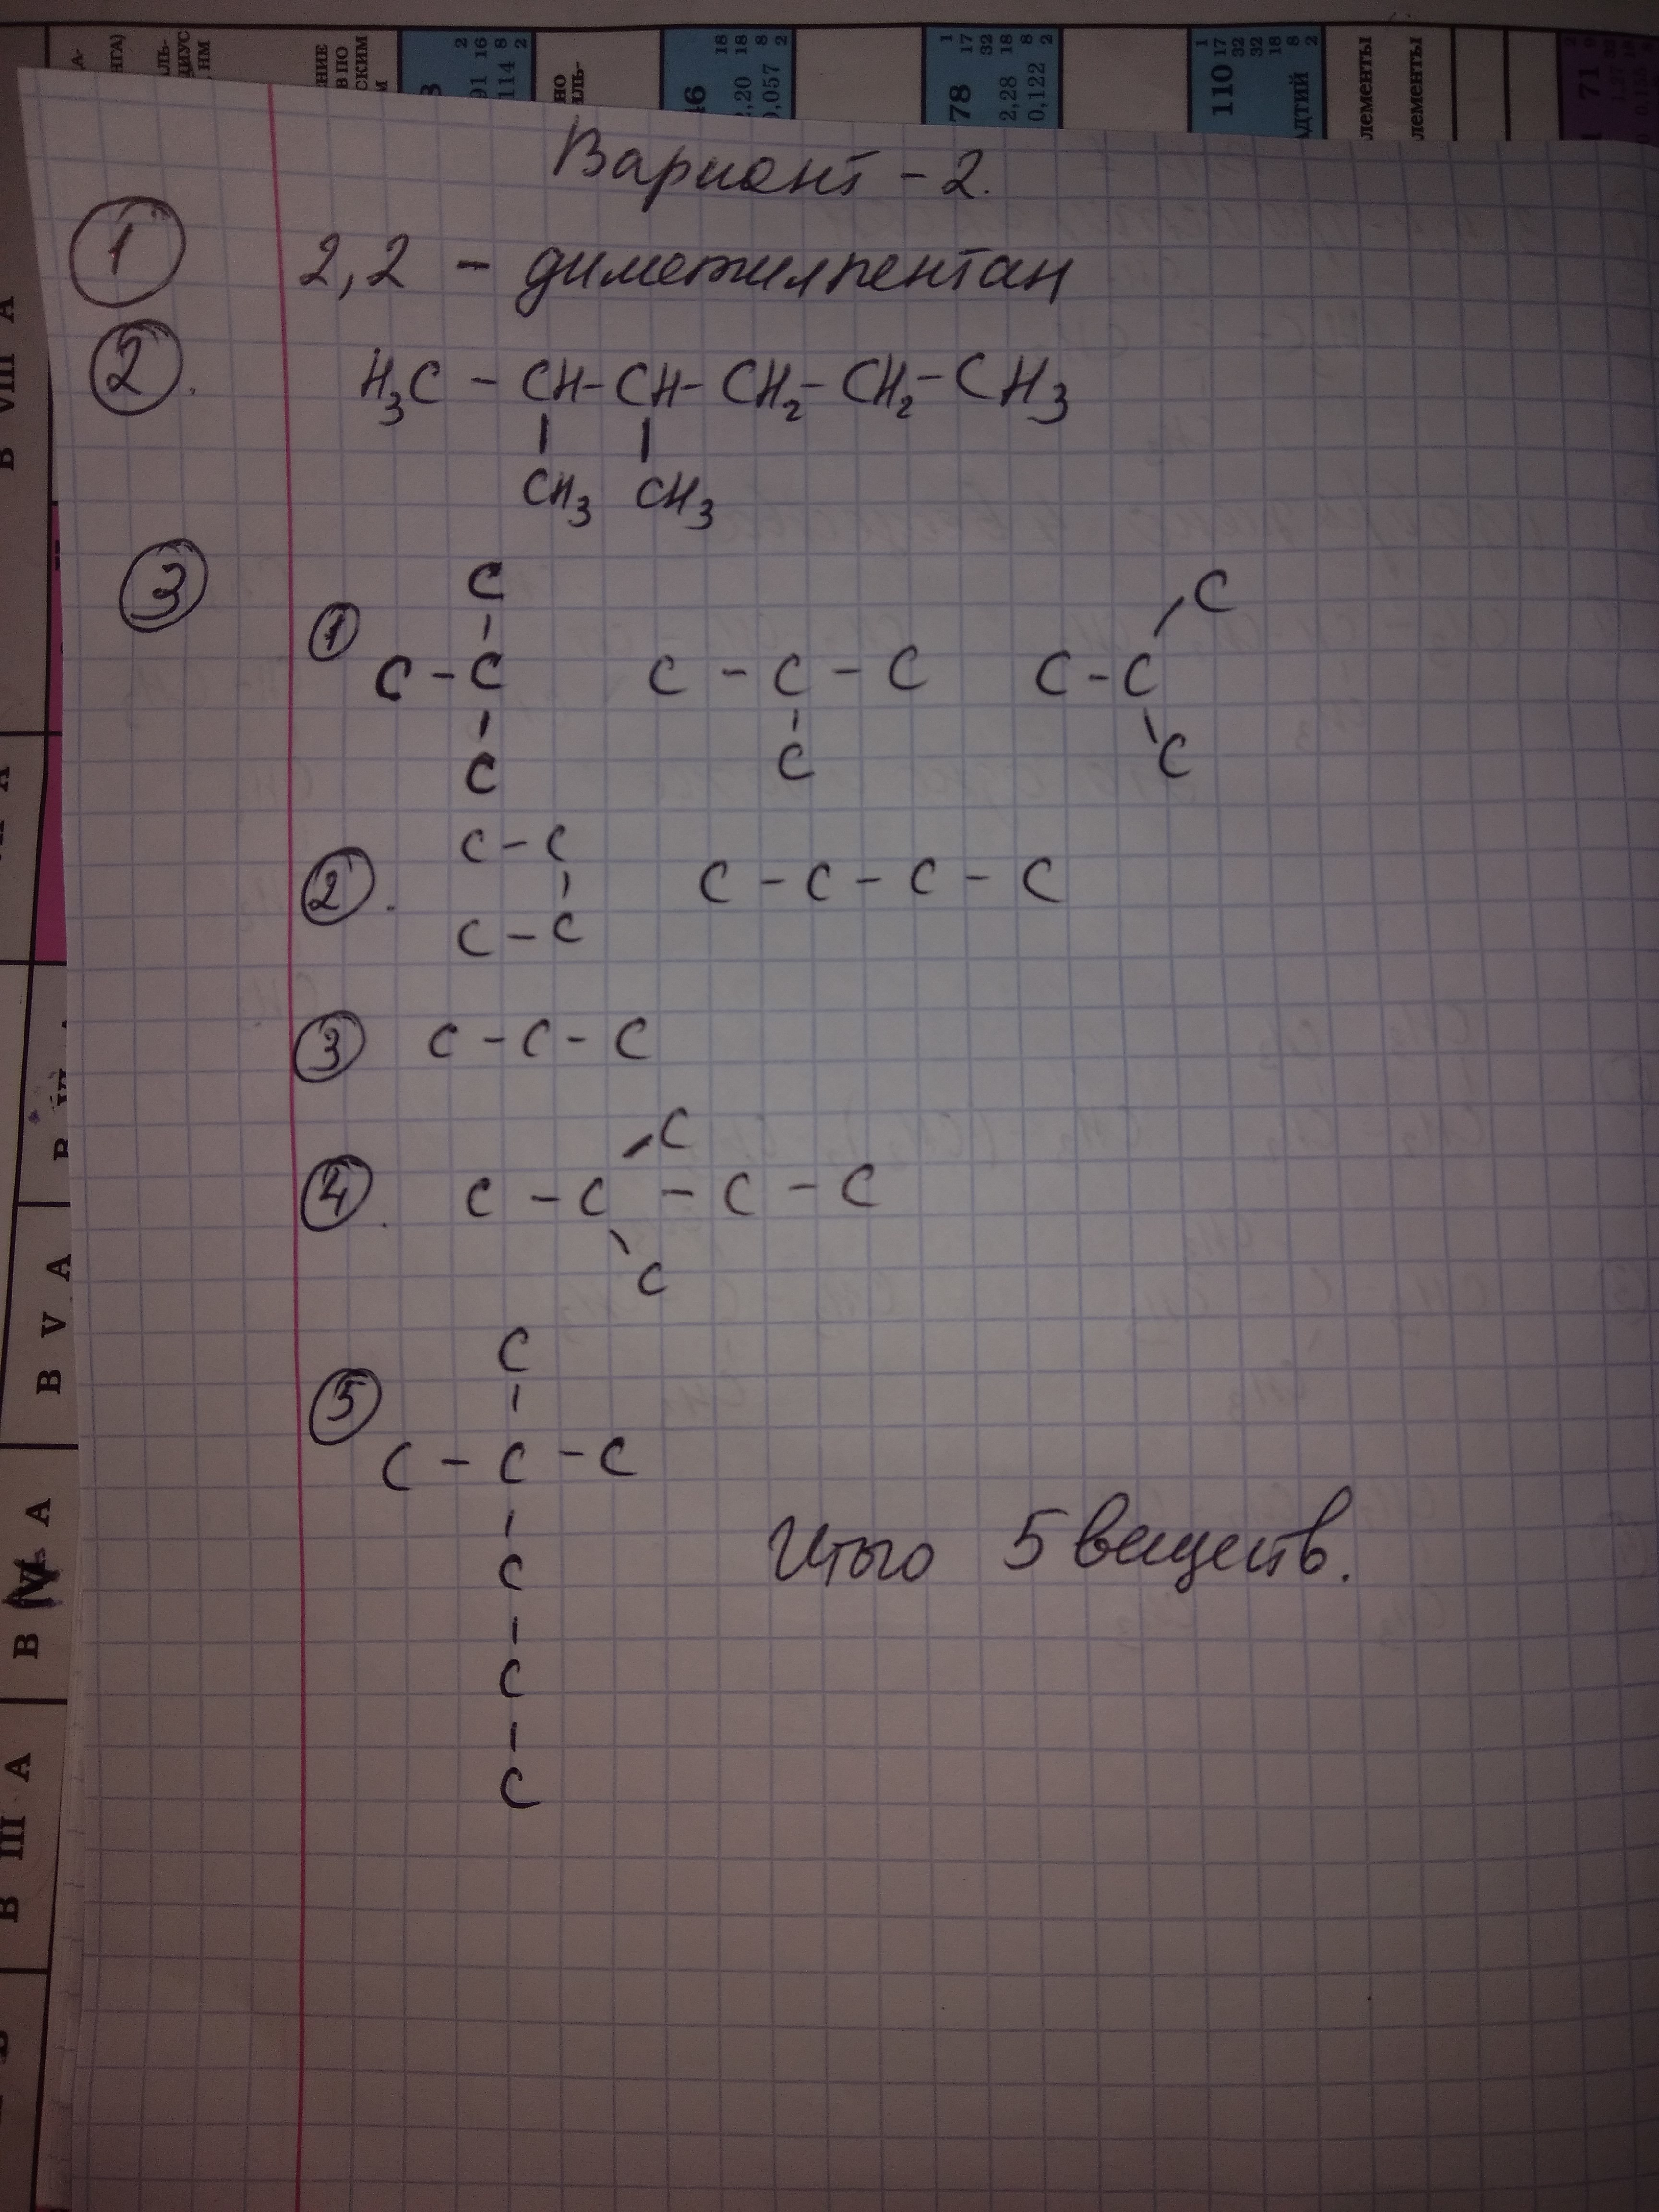 Вариант - 2.
1 2,2 - диметилпентан
2. H3C - CH - CH - CH2 - CH2 - CH3
CH3 CH3
3
1
C
C - C C - C - C C - C
C
C C C
2. C - C
C - C - C - C
C - C
3 C - C - C
4.
C
C - C - C - C
C
5
C
C - C - C
C
C
C
Итого 5 веществ.
B VIII A
B V A
B VI A
B III A
78
2,28
0,122
110
2,20
0,057
71